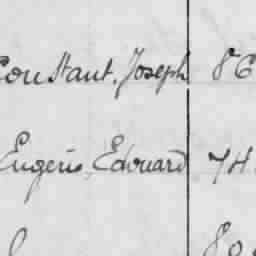 Constant, Joseph 86
Eugène, Edouard 74
80